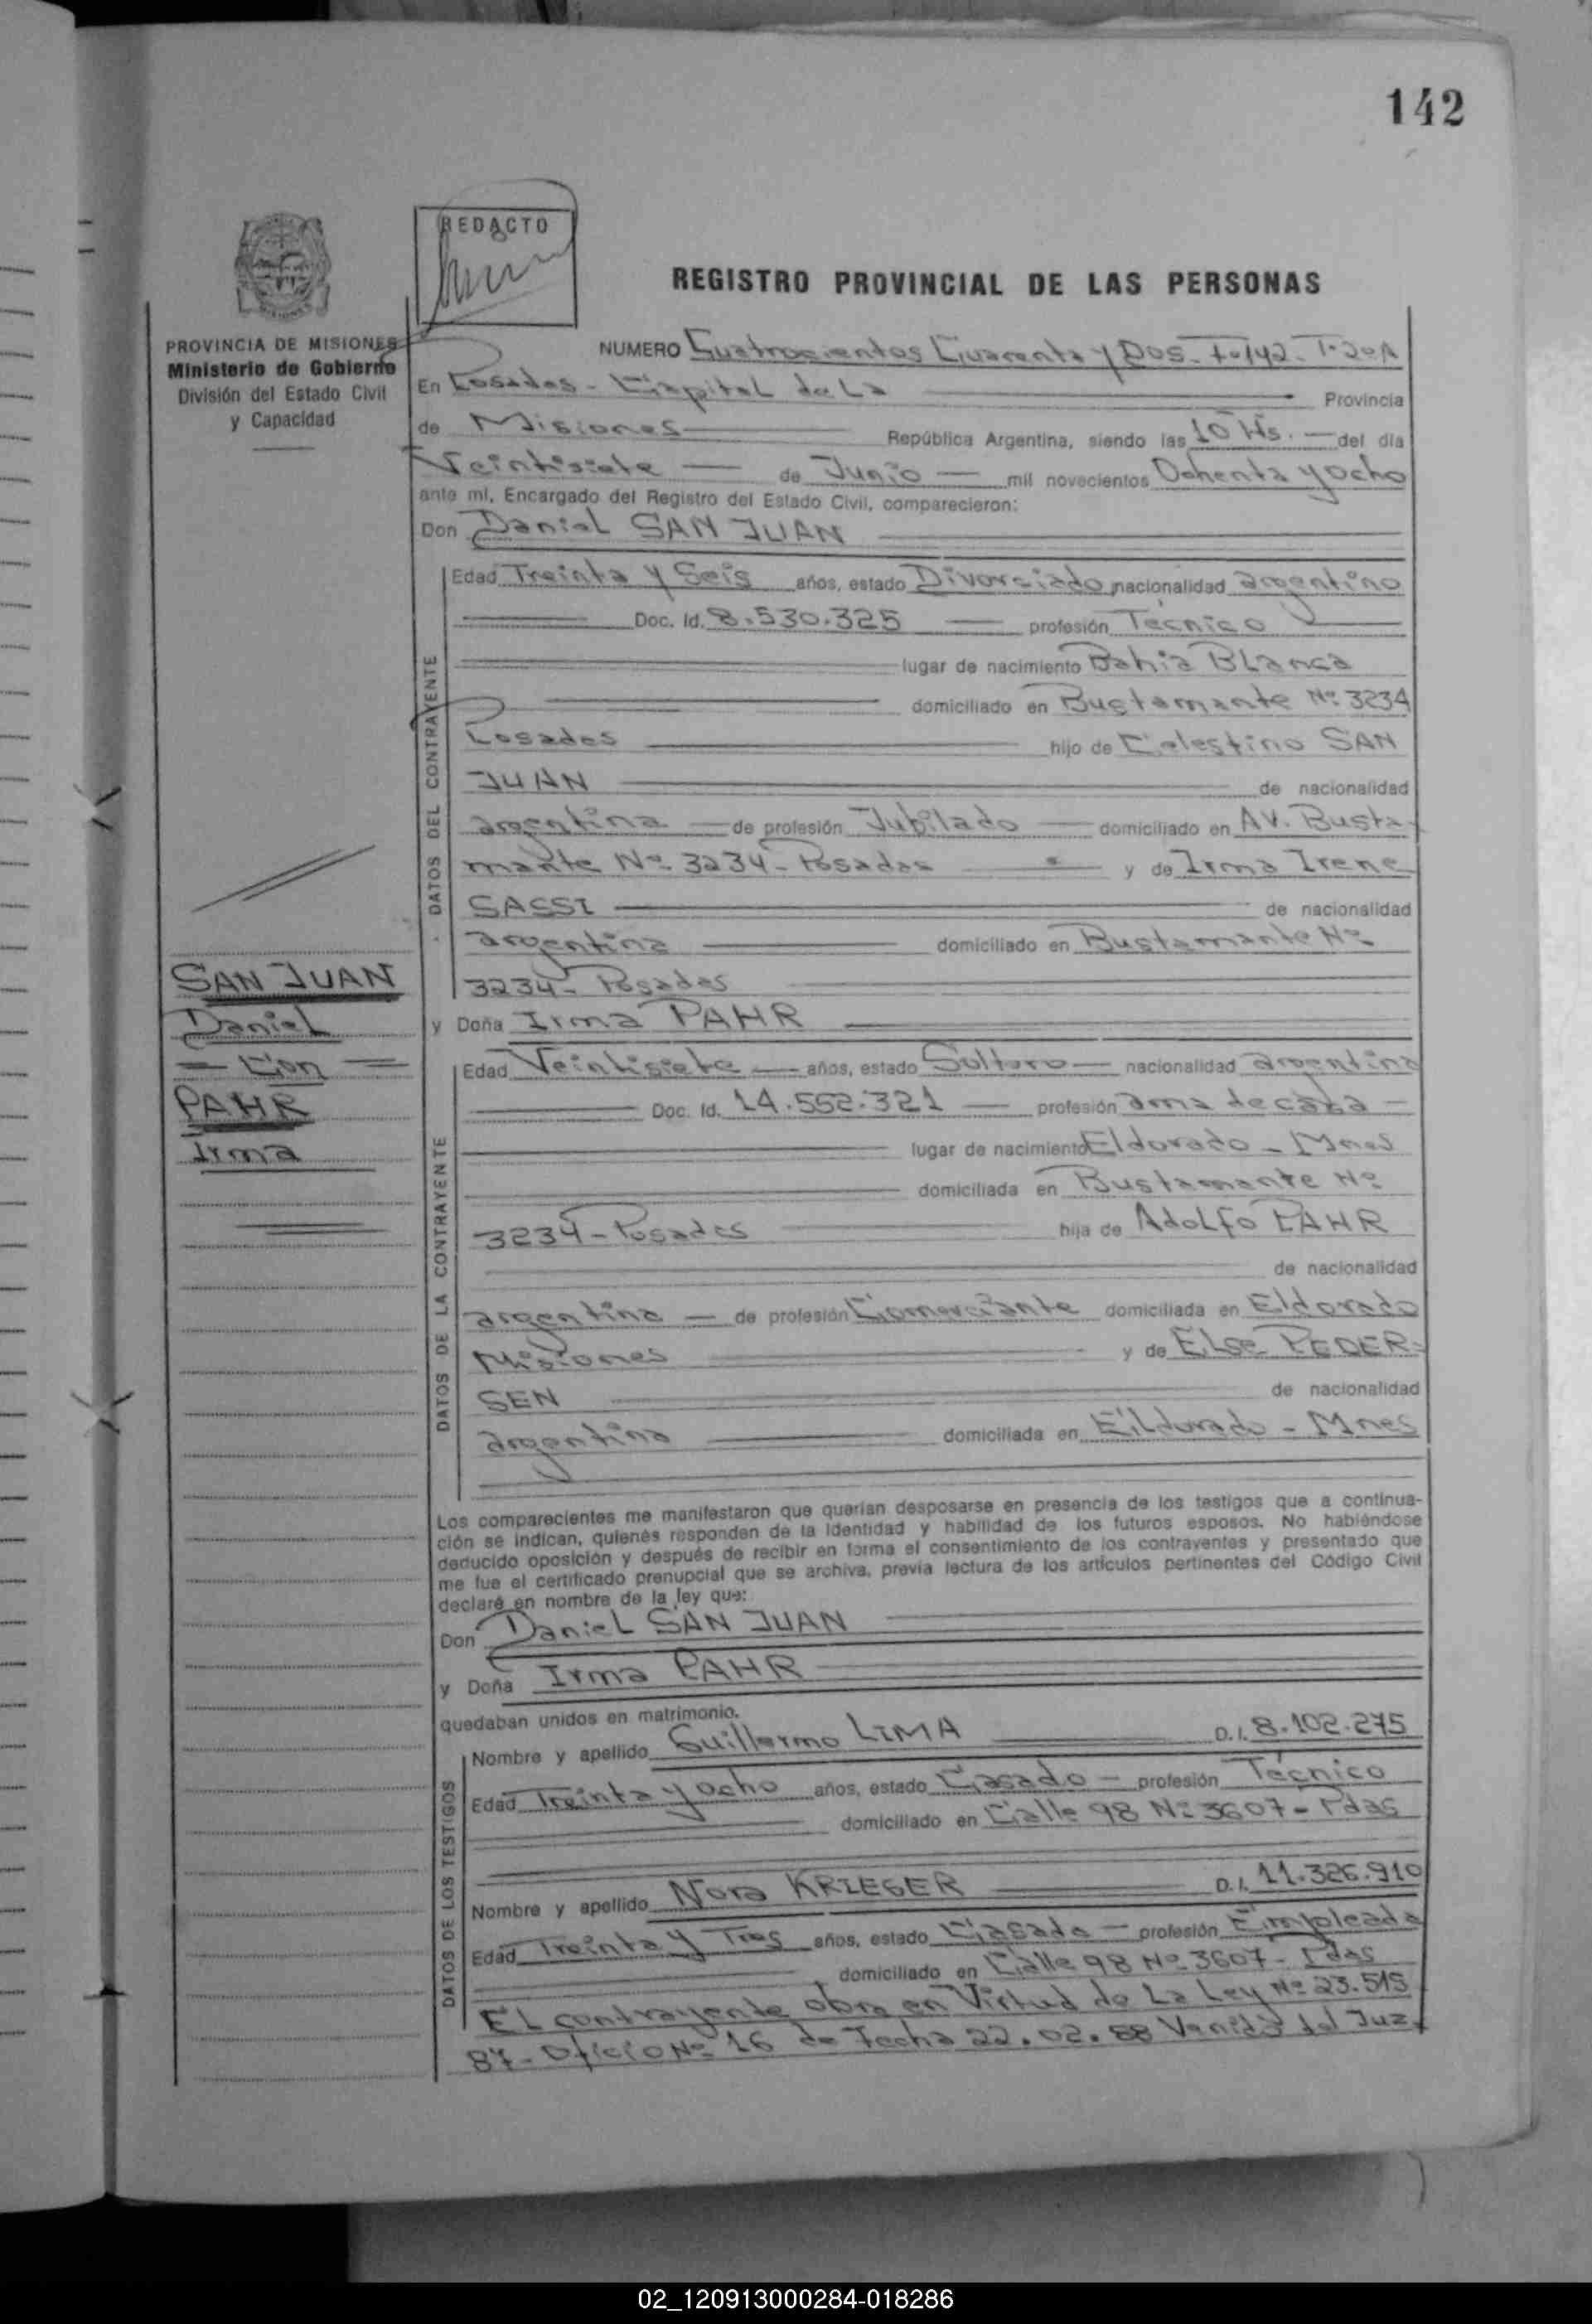 142
REDACTO
REGISTRO PROVINCIAL DE LAS PERSONAS
PROVINCIA DE MISIONES
Ministerio de Gobierno
División del Estado Civil
y Capacidad
NUMERO Cuatrocientos Cuarenta y Dos - Fº 142 - Tº 2º A
En Posadas - Capital de La Provincia
de Misiones República Argentina, siendo las 10 Hs. del día
Veintisiete de Junio mil novecientos Ochenta y Ocho
ante mí, Encargado del Registro del Estado Civil, comparecieron:
Don Daniel SAN JUAN
DATOS DEL CONTRAYENTE
Edad Treinta y Seis años, estado Divorciado nacionalidad argentino
Doc. Id. 8.530.325 profesión Técnico
lugar de nacimiento Bahia Blanca
domiciliado en Bustamante Nº 3234
Posadas hijo de Celestino SAN
JUAN de nacionalidad
argentina de profesión Jubilado domiciliado en AV. Busta-
mante Nº 3234 - Posadas y de Irma Irene
SASSI de nacionalidad
argentina domiciliado en Bustamante Nº
3234 - Posadas
SAN JUAN
Daniel
= Con =
PAHR
Irma
y Doña Irma PAHR
DATOS DE LA CONTRAYENTE
Edad Veintisiete años, estado Soltera nacionalidad argentina
Doc. Id. 14.552.321 profesión ama de casa
lugar de nacimiento Eldorado - Mnes
domiciliada en Bustamante Nº
3234 - Posadas hija de Adolfo PAHR
de nacionalidad
argentina de profesión Comerciante domiciliada en Eldorado
Misiones y de Else PEDER=
SEN de nacionalidad
argentina domiciliada en Eldorado - Mnes
Los comparecientes me manifestaron que querían desposarse en presencia de los testigos que a continua-
ción se indican, quienes responden de la identidad y habilidad de los futuros esposos. No habiéndose
deducido oposición y después de recibir en forma el consentimiento de los contrayentes y presentado que
me fue el certificado prenupcial que se archiva, previa lectura de los artículos pertinentes del Código Civil
declaré en nombre de la ley que:
Don Daniel SAN JUAN
y Doña Irma PAHR
quedaban unidos en matrimonio.
DATOS DE LOS TESTIGOS
Nombre y apellido Guillermo LIMA D.I. 8.102.275
Edad Treinta y Ocho años, estado Casado profesión Técnico
domiciliado en Calle 98 Nº 3607 - Pdas
Nombre y apellido Nora KRIEGER D.I. 11.326.910
Edad Treinta y Tres años, estado Casada profesión Empleada
domiciliado en Calle 98 Nº 3607 - Pdas
El contrayente obra en Virtud de La Ley Nº 23.515
87 - Oficio Nº 16 de Fecha 22.02.88 Venido del Juz.
02_120913000284-018286